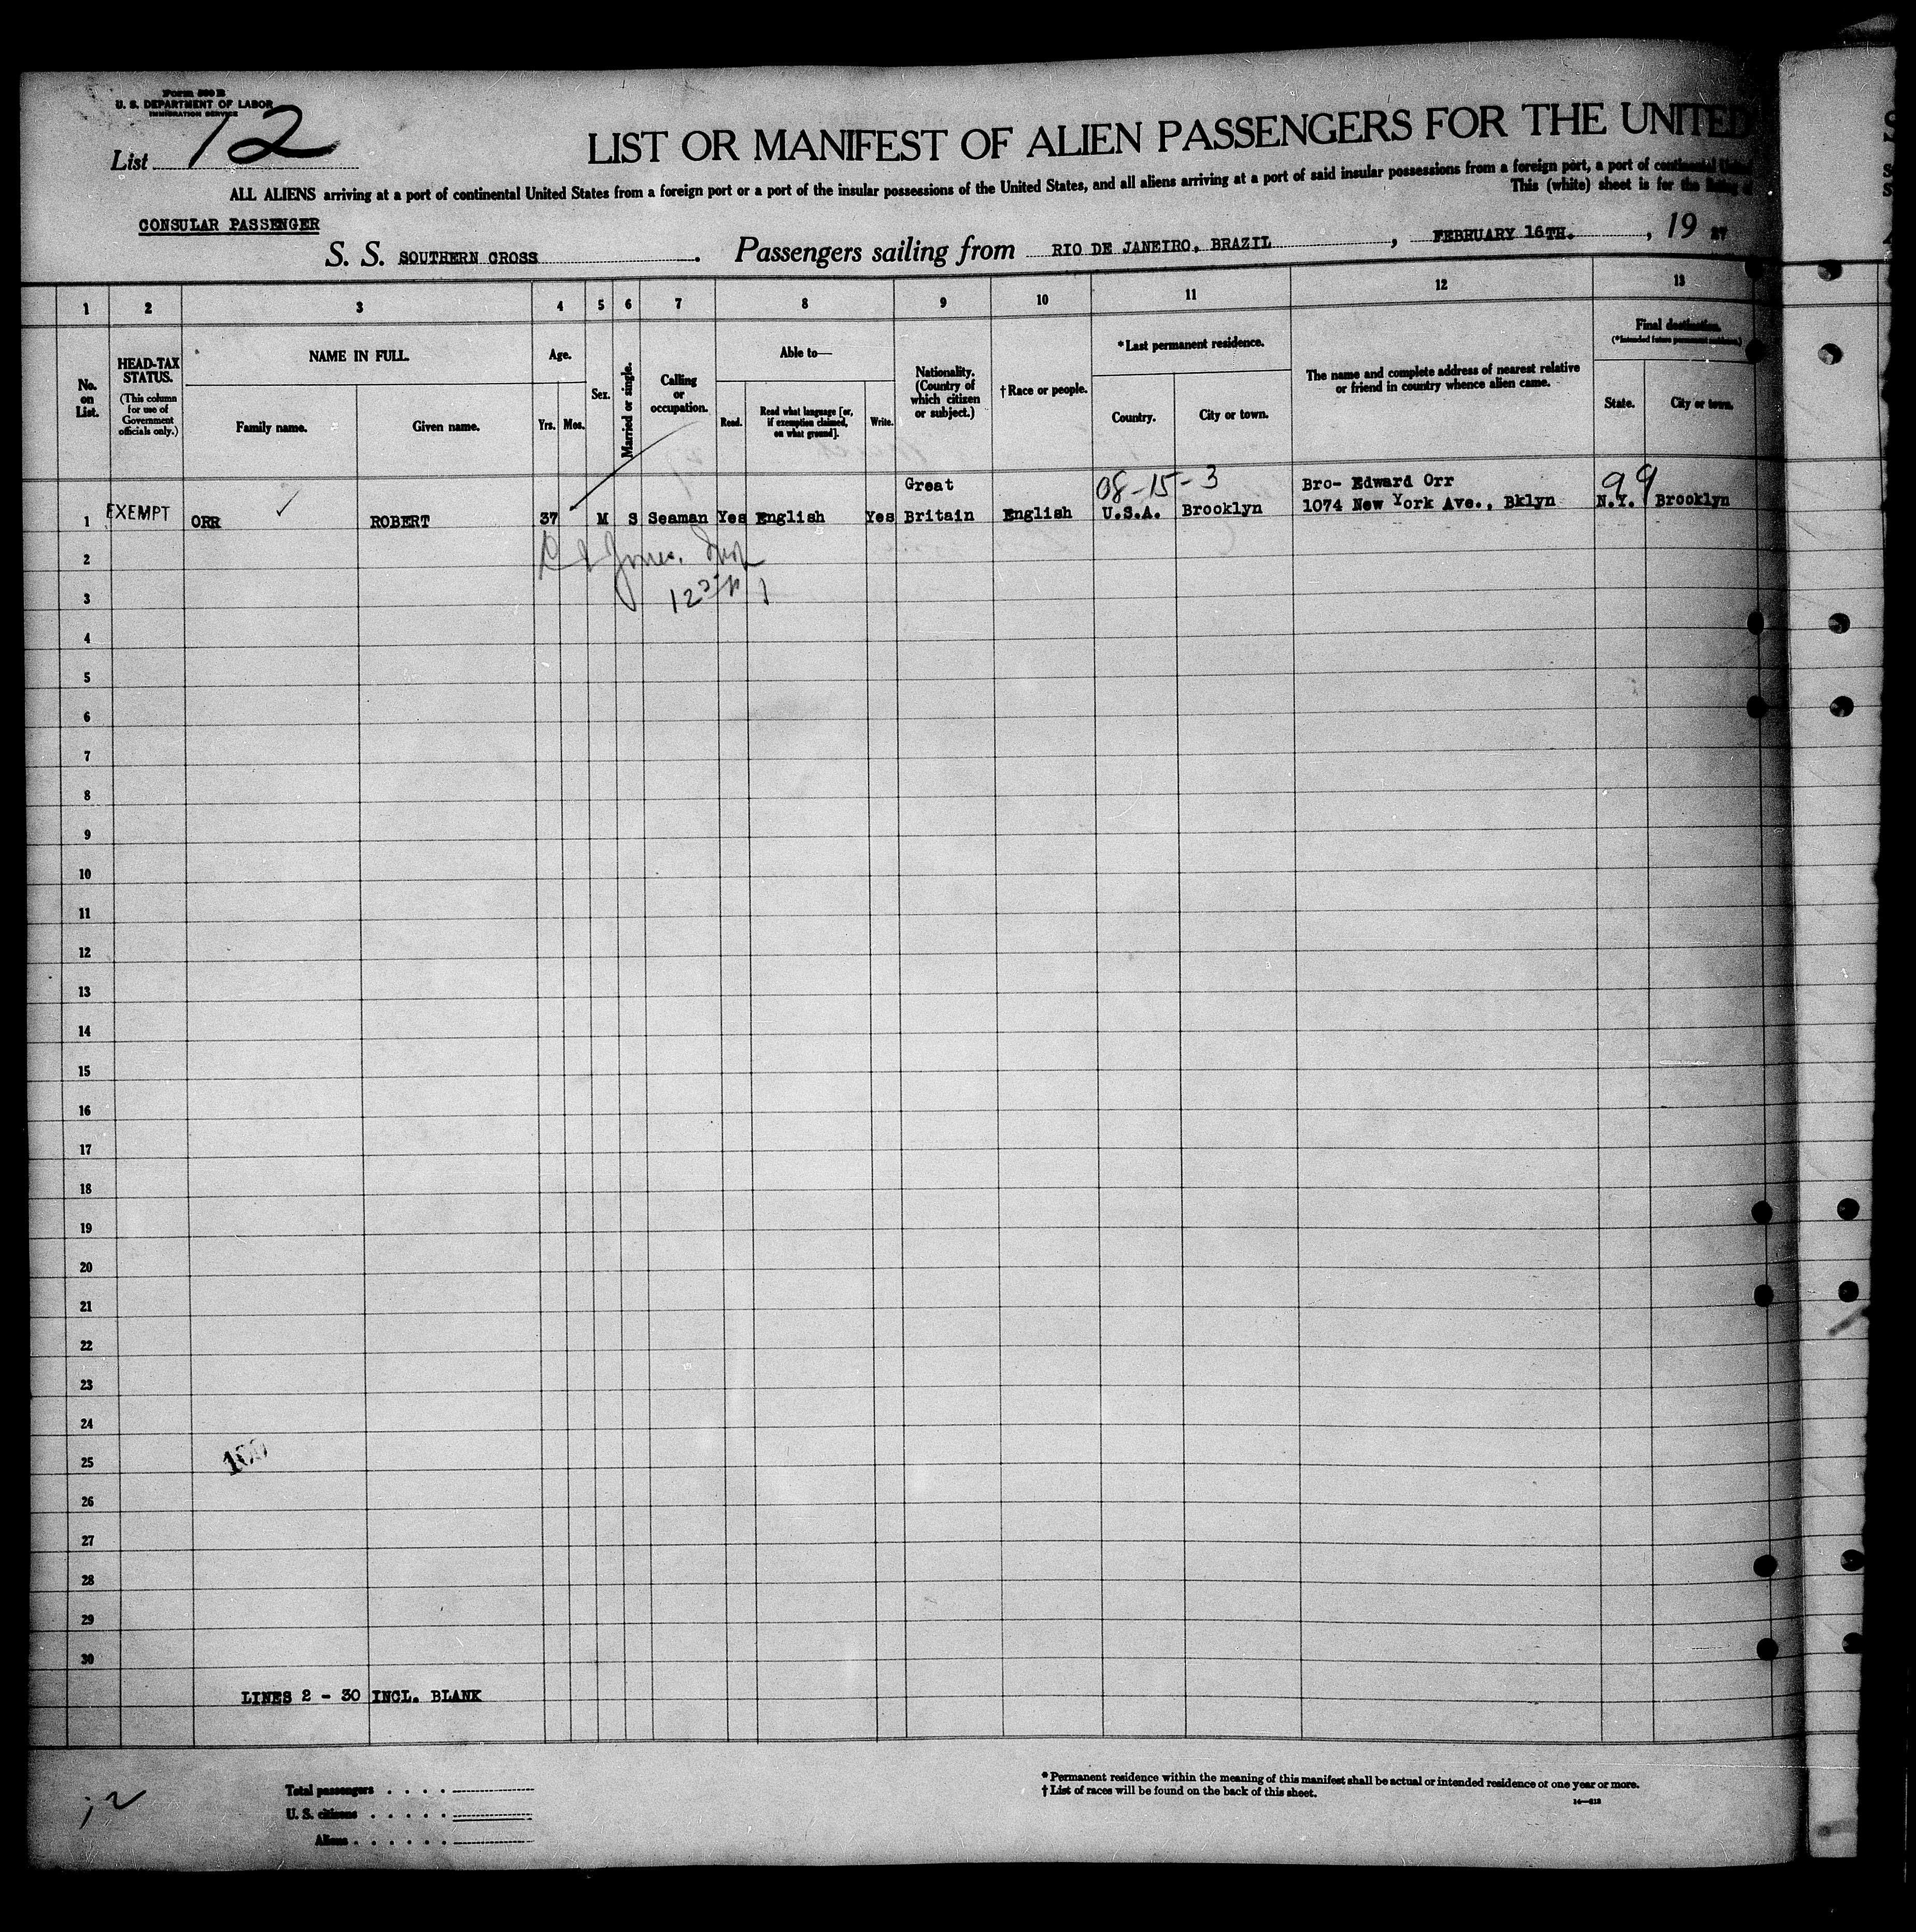 Form 500 B
U. S. DEPARTMENT OF LABOR
IMMIGRATION SERVICE
List 12
LIST OR MANIFEST OF ALIEN PASSENGERS FOR THE UNITED
ALL ALIENS arriving at a port of continental United States from a foreign port or a port of the insular possessions of the United States, and all aliens arriving at a port of said insular possessions from a foreign port, a port of continental
This (white) sheet is for the
CONSULAR PASSENGER
S. S. SOUTHERN CROSS. Passengers sailing from RIO DE JANEIRO, BRAZIL, FEBRUARY 16TH., 19 27
1 2 3 4 5 6 7 8 9 10 11 12 13
No. on List.
HEAD-TAX STATUS.
(This column for use of Government officials only.)
NAME IN FULL.
Family name. Given name.
Age.
Yrs. Mos.
Sex.
Married or single.
Calling or occupation.
Able to—
Read. Read what language [or, if exemption claimed, on what ground]. Write.
Nationality. (Country of which citizen or subject.)
† Race or people.
* Last permanent residence.
Country. City or town.
The name and complete address of nearest relative or friend in country whence alien came.
Final destination.
(*Intended future permanent residence.)
State. City or town.
08-15-3 99
1 EXEMPT ORR ✓ ROBERT 37 M S Seaman Yes English Yes Great Britain English U.S.A. Brooklyn Bro- Edward Orr 1074 New York Ave., Bklyn N.Y. Brooklyn
2
3
4
5
6
7
8
9
10
11
12
13
14
15
16
17
18
19
20
21
22
23
24
25
26
27
28
29
30
LINES 2 - 30 INCL. BLANK
12
Total passengers
U. S. citizens
Aliens
* Permanent residence within the meaning of this manifest shall be actual or intended residence of one year or more.
† List of races will be found on the back of this sheet.